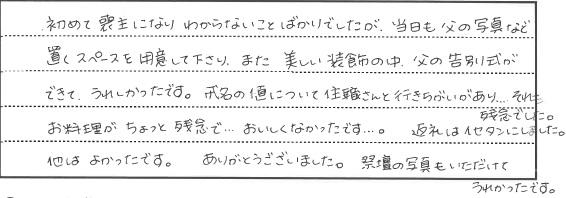 初めて喪主になり わからないことばかりでしたが、当日も父の写真など
置くスペースを用意して下さり、また 美しい装飾の中、父の告別式が
できて、うれしかったです。戒名の値について住職さんと行きちがいがあり… それも
残念でした。
お料理が ちょっと 残念で… おいしくなかったです…。 返礼はイセタンにしました。
他は よかったです。 ありがとうございました。 祭壇の写真もいただけて
うれかったです。